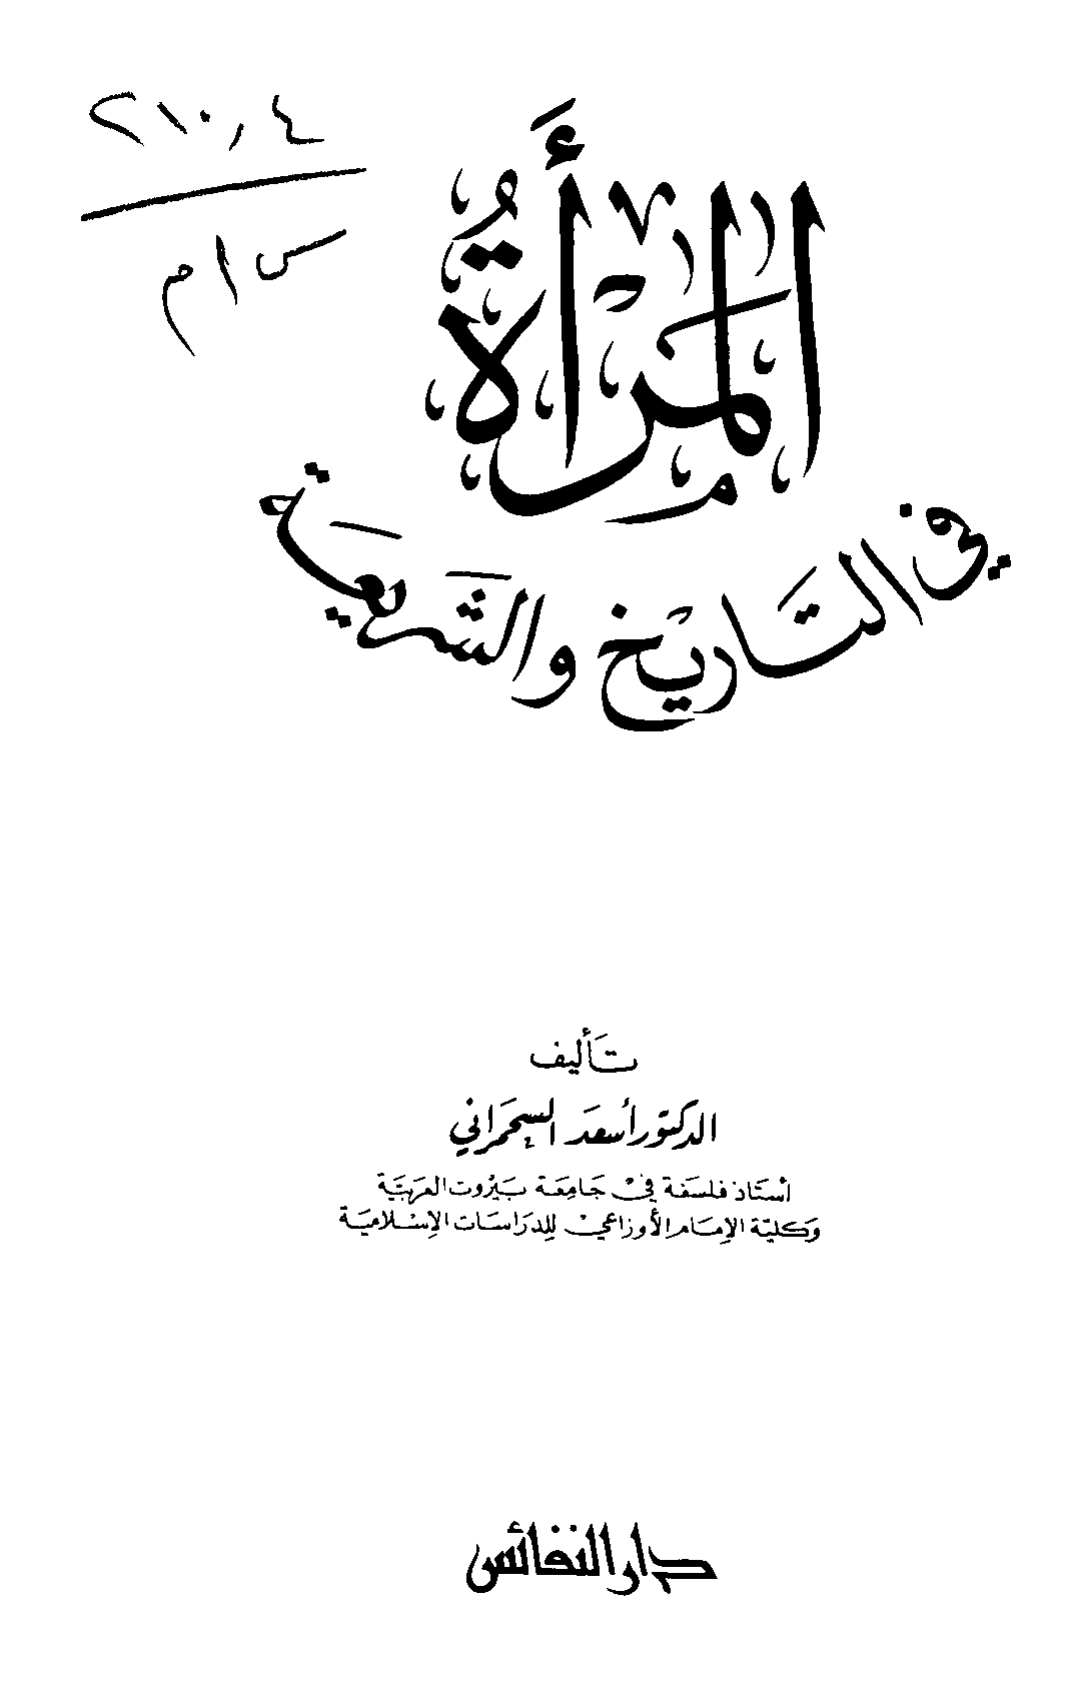 ٢١٠,٤
س ا م
المرأة
في التاريخ والشريعة
تأليف
الدكتور أسعد السحمراني
أستاذ فلسفة في جامعة بيروت العربية
وكلية الإمام الأوزاعي للدراسات الإسلامية
دار النفائس